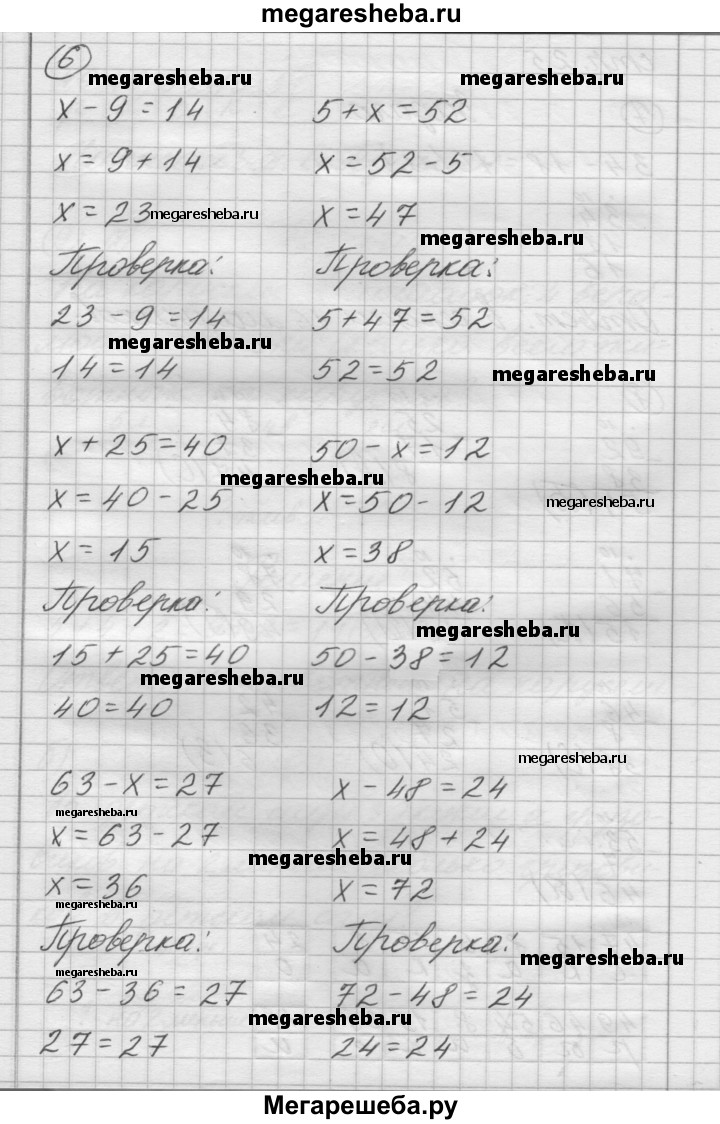 megaresheba.ru
6
megaresheba.ru megaresheba.ru
x - 9 = 14 5 + x = 52
x = 9 + 14 x = 52 - 5
x = 23 megaresheba.ru x = 47
megaresheba.ru
Проверка: Проверка:
23 - 9 = 14 5 + 47 = 52
megaresheba.ru
14 = 14 52 = 52 megaresheba.ru
x + 25 = 40 50 - x = 12
megaresheba.ru
x = 40 - 25 x = 50 - 12 megaresheba.ru
x = 15 x = 38
Проверка: Проверка:
megaresheba.ru
15 + 25 = 40 50 - 38 = 12
megaresheba.ru
40 = 40 12 = 12
megaresheba.ru
63 - x = 27 x - 48 = 24
megaresheba.ru
x = 63 - 27 x = 48 + 24
megaresheba.ru
x = 36 x = 72
megaresheba.ru
Проверка: Проверка:
megaresheba.ru
megaresheba.ru
63 - 36 = 27 72 - 48 = 24
megaresheba.ru
27 = 27 24 = 24
Мегарешеба.ру